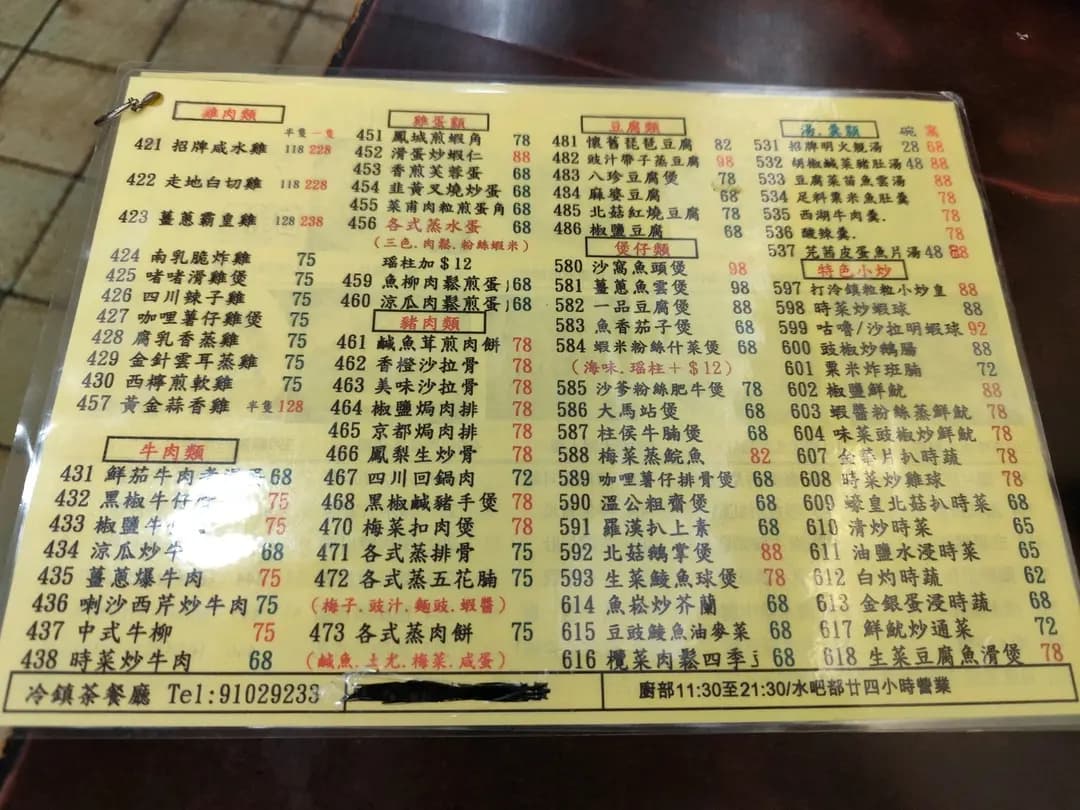 雞肉類
半隻 一隻
421 招牌咸水雞 118 228
422 走地白切雞 118 228
423 薑蔥霸皇雞 128 238
424 南乳脆炸雞 75
425 啫啫滑雞煲 75
426 四川辣子雞 75
427 咖哩薯仔雞煲 75
428 腐乳香蒸雞 75
429 金針雲耳蒸雞 75
430 西檸煎軟雞 75
457 黃金蒜香雞 半隻128
牛肉類
431 鮮茄牛肉 68
432 黑椒牛仔 75
433 椒鹽牛 75
434 涼瓜炒牛 68
435 薑蔥爆牛肉 75
436 喇沙西芹炒牛肉 75
437 中式牛柳 75
438 時菜炒牛肉 68
雞蛋類
451 鳳城煎蝦角 78
452 滑蛋炒蝦仁 88
453 香煎芙蓉蛋 68
454 韭黃叉燒炒蛋 68
455 菜甫肉粒煎蛋角 68
456 各式蒸水蛋 68
(三色.肉鬆.粉絲蝦米)
瑤柱加$12
459 魚柳肉鬆煎蛋 68
460 涼瓜肉鬆煎蛋 68
豬肉類
461 鹹魚茸煎肉餅 78
462 香橙沙拉骨 78
463 美味沙拉骨 78
464 椒鹽焗肉排 78
465 京都焗肉排 78
466 鳳梨生炒骨 78
467 四川回鍋肉 72
468 黑椒鹹豬手煲 78
470 梅菜扣肉煲 78
471 各式蒸排骨 75
472 各式蒸五花腩 75
(梅子.豉汁.麵豉.蝦醬)
473 各式蒸肉餅 75
(鹹魚.土尤.梅菜.咸蛋)
豆腐類
481 懷舊琵琶豆腐 82
482 豉汁帶子蒸豆腐 98
483 八珍豆腐煲 78
484 麻婆豆腐 68
485 北菇紅燒豆腐 78
486 椒鹽豆腐 68
煲仔類
580 沙窩魚頭煲 98
581 薑蔥魚雲煲 98
582 一品豆腐煲 88
583 魚香茄子煲 68
584 蝦米粉絲什菜煲 68
(海味.瑤柱+$12)
585 沙爹粉絲肥牛煲 78
586 大馬站煲 68
587 柱侯牛腩煲 68
588 梅菜蒸鯇魚 82
589 咖哩薯仔排骨煲 78
590 溫公粗齋煲 68
591 羅漢扒上素 68
592 北菇鵝掌煲 88
593 生菜鯪魚球煲 78
614 魚崧炒芥蘭 68
615 豆豉鯪魚油麥菜 68
616 欖菜肉鬆四季 68
湯.羹類 碗 窩
531 招牌明火靚湯 28 68
532 胡椒鹹菜豬肚湯 48 88
533 豆腐菜苗魚雲湯 88
534 足料粟米魚肚羹 78
535 西湖牛肉羹. 78
536 酸辣羹. 78
537 芫茜皮蛋魚片湯 48 88
特色小炒
597 打冷鎮粒粒小炒皇 88
598 時菜炒蝦球 88
599 咕嚕/沙拉明蝦球 92
600 豉椒炒鵝腸 88
601 粟米炸班腩 72
602 椒鹽鮮魷 88
603 蝦醬粉絲蒸鮮魷 78
604 味菜豉椒炒鮮魷 78
607 金華片扒時蔬 78
608 時菜炒雞球 78
609 蠔皇北菇扒時菜 68
610 清炒時菜 65
611 油鹽水浸時菜 65
612 白灼時蔬 62
613 金銀蛋浸時蔬 68
617 鮮魷炒通菜 72
618 生菜豆腐魚滑煲 78
冷鎮茶餐廳 Tel:91029233
廚部11:30至21:30/水吧部廿四小時營業